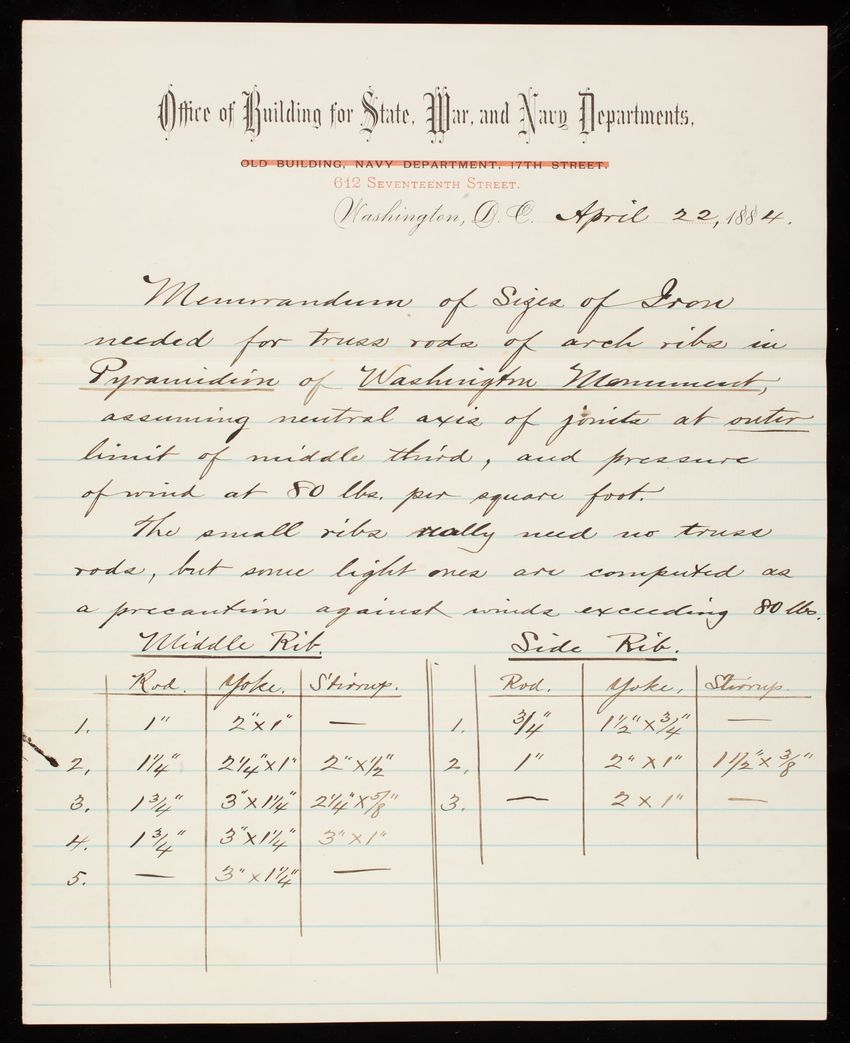 Office of Building for State, War, and Navy Departments,
OLD BUILDING, NAVY DEPARTMENT, 17TH STREET.
612 SEVENTEENTH STREET.
Washington, D. C. April 22, 1884.
Memorandum of Sizes of Iron
needed for truss rods of arch ribs in
Pyramidion of Washington Monument,
assuming neutral axis of joints at outer
limit of middle third, and pressure
of wind at 80 lbs. per square foot.
The small ribs really need no truss
rods, but some light ones are computed as
a precaution against winds exceeding 80 lbs.
Middle Rib. Side Rib.
Rod. Yoke. Stirrup. Rod. Yoke, Stirrup.
1. 1" 2"x1" — 1. 3/4" 1 1/2"x3/4" —
2. 1 1/4" 2 1/4"x1" 2"x1/2" 2. 1" 2"x1" 1 1/2"x3/8"
3. 1 3/4" 3"x1 1/4" 2 1/4"x5/8" 3. — 2x1" —
4. 1 3/4" 3"x1 1/4" 3"x1"
5. — 3"x1 1/4" —